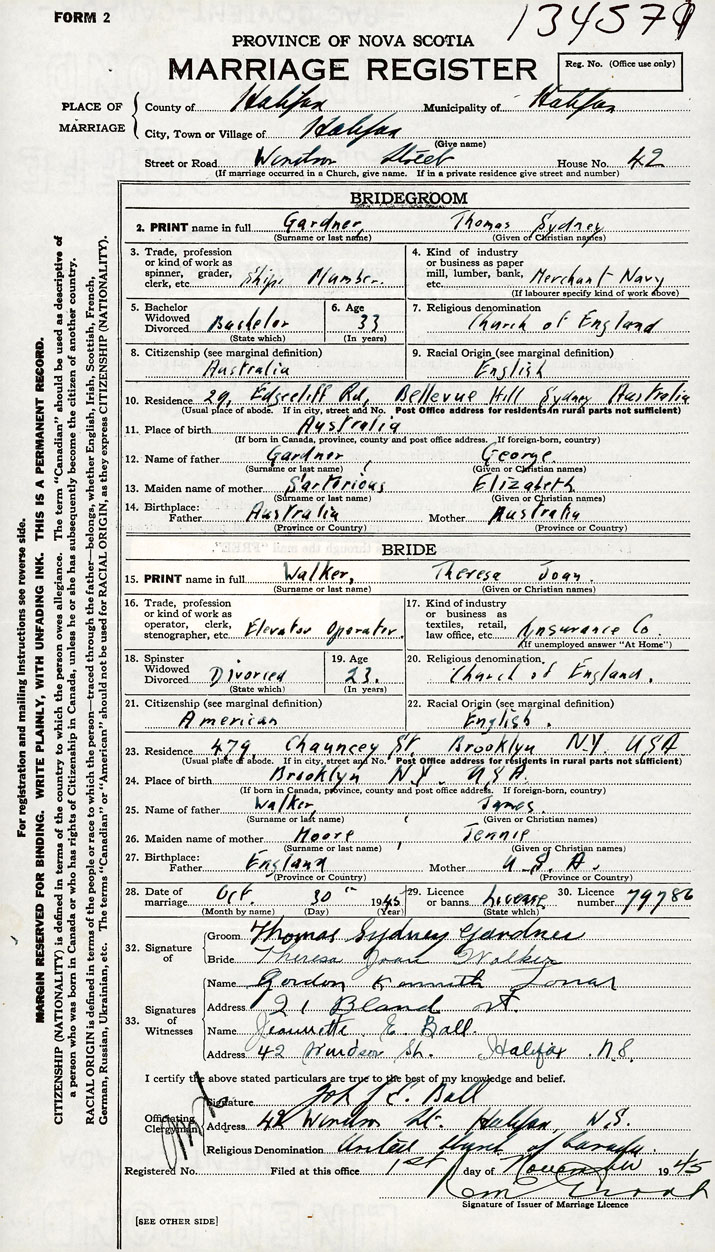 FORM 2
13457
PROVINCE OF NOVA SCOTIA
MARRIAGE REGISTER
Reg. No. (Office use only)
PLACE OF MARRIAGE
County of Halifax Municipality of Halifax
City, Town or Village of Halifax
(Give name)
Street or Road Windsor Street House No. 42
(If marriage occurred in a Church, give name. If in a private residence give street and number)
BRIDEGROOM
2. PRINT name in full Gardner, Thomas Sydney
(Surname or last name) (Given or Christian names)
3. Trade, profession or kind of work as spinner, grader, clerk, etc. Ship's Plumber.
4. Kind of industry or business as paper mill, lumber, bank, etc. Merchant Navy
(If labourer specify kind of work above)
5. Bachelor Widowed Divorced Bachelor
(State which)
6. Age 33
(In years)
7. Religious denomination Church of England
8. Citizenship (see marginal definition) Australia
9. Racial Origin (see marginal definition) English
10. Residence 29, Edgecliff Rd, Bellevue Hill Sydney Australia
(Usual place of abode. If in city, street and No. Post Office address for residents in rural parts not sufficient)
11. Place of birth Australia
(If born in Canada, province, county and post office address. If foreign-born, country)
12. Name of father Gardner, George
(Surname or last name) (Given or Christian names)
13. Maiden name of mother Sartorious Elizabeth
(Surname or last name) (Given or Christian names)
14. Birthplace: Father Australia Mother Australia
(Province or Country) (Province or Country)
BRIDE
15. PRINT name in full Walker, Theresa Joan.
(Surname or last name) (Given or Christian names)
16. Trade, profession or kind of work as operator, clerk, stenographer, etc. Elevator Operator.
17. Kind of industry or business as textiles, retail, law office, etc. Insurance Co.
(If unemployed answer "At Home")
18. Spinster Widowed Divorced Divorced
(State which)
19. Age 23.
(In years)
20. Religious denomination. Church of England.
21. Citizenship (see marginal definition) American
22. Racial Origin (see marginal definition) English.
23. Residence 479, Chauncey St. Brooklyn N.Y. USA.
(Usual place of abode. If in city, street and No. Post Office address for residents in rural parts not sufficient)
24. Place of birth Brooklyn N.Y. U.S.A.
(If born in Canada, province, county and post office address. If foreign-born, country)
25. Name of father Walker, James
(Surname or last name) (Given or Christian names)
26. Maiden name of mother Moore, Jennie
(Surname or last name) (Given or Christian names)
27. Birthplace: Father England Mother U.S.A.
(Province or Country) (Province or Country)
28. Date of marriage Oct. 30th 1945
(Month by name) (Day) (Year)
29. Licence or banns License
(State which)
30. Licence number 79786
32. Signature of
Groom Thomas Sydney Gardner
Bride Theresa Joan Walker
33. Signatures of Witnesses
Name Gordon Kenneth
Address 21 Bland St.
Name Jeannette E. Ball.
Address 42 Windsor St. Halifax N.S.
I certify the above stated particulars are true to the best of my knowledge and belief.
Officiating Clergyman
Signature Ball
Address 42 Windsor St. Halifax, N.S.
Religious Denomination United Church of Canada.
Registered No. Filed at this office 1st day of November 1945
Signature of Issuer of Marriage Licence
[SEE OTHER SIDE]
For registration and mailing instructions see reverse side.
MARGIN RESERVED FOR BINDING. WRITE PLAINLY, WITH UNFADING INK. THIS IS A PERMANENT RECORD.
CITIZENSHIP (NATIONALITY) is defined in terms of the country to which the person owes allegiance. The term "Canadian" should be used as descriptive of
a person who was born in Canada or who has rights of Citizenship in Canada, unless he or she has subsequently become the citizen of another country.
RACIAL ORIGIN is defined in terms of the people or race to which the person—traced through the father—belongs, whether English, Irish, Scottish, French,
German, Russian, Ukrainian, etc. The terms "Canadian" or "American" should not be used for RACIAL ORIGIN, as they express CITIZENSHIP (NATIONALITY).